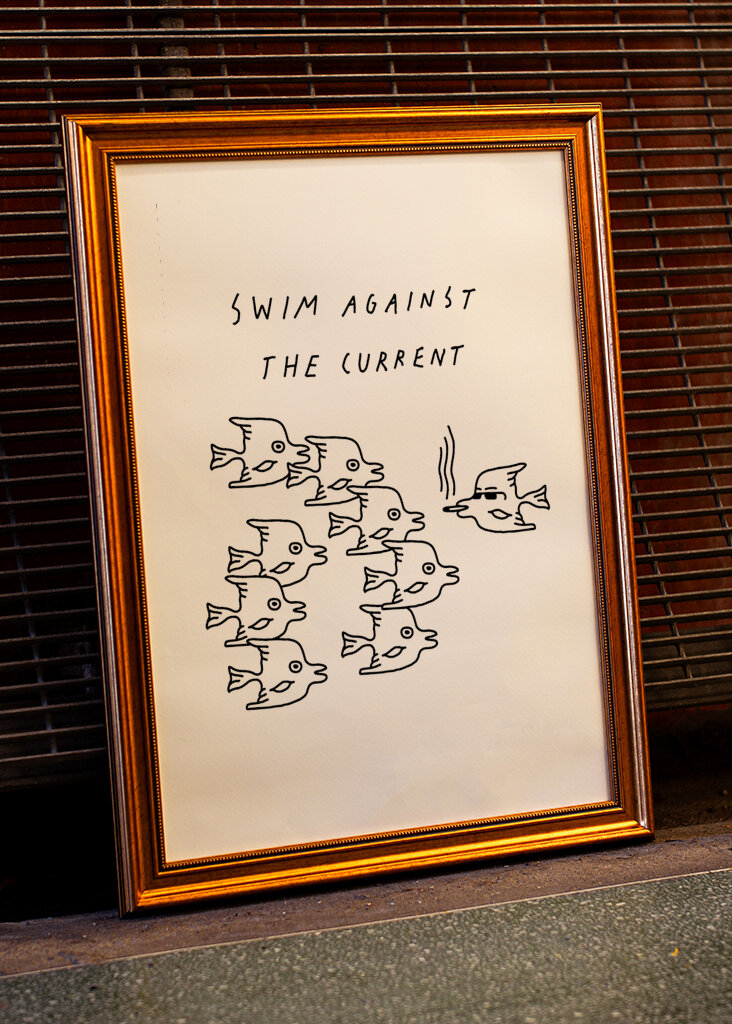 SWIM AGAINST
THE CURRENT